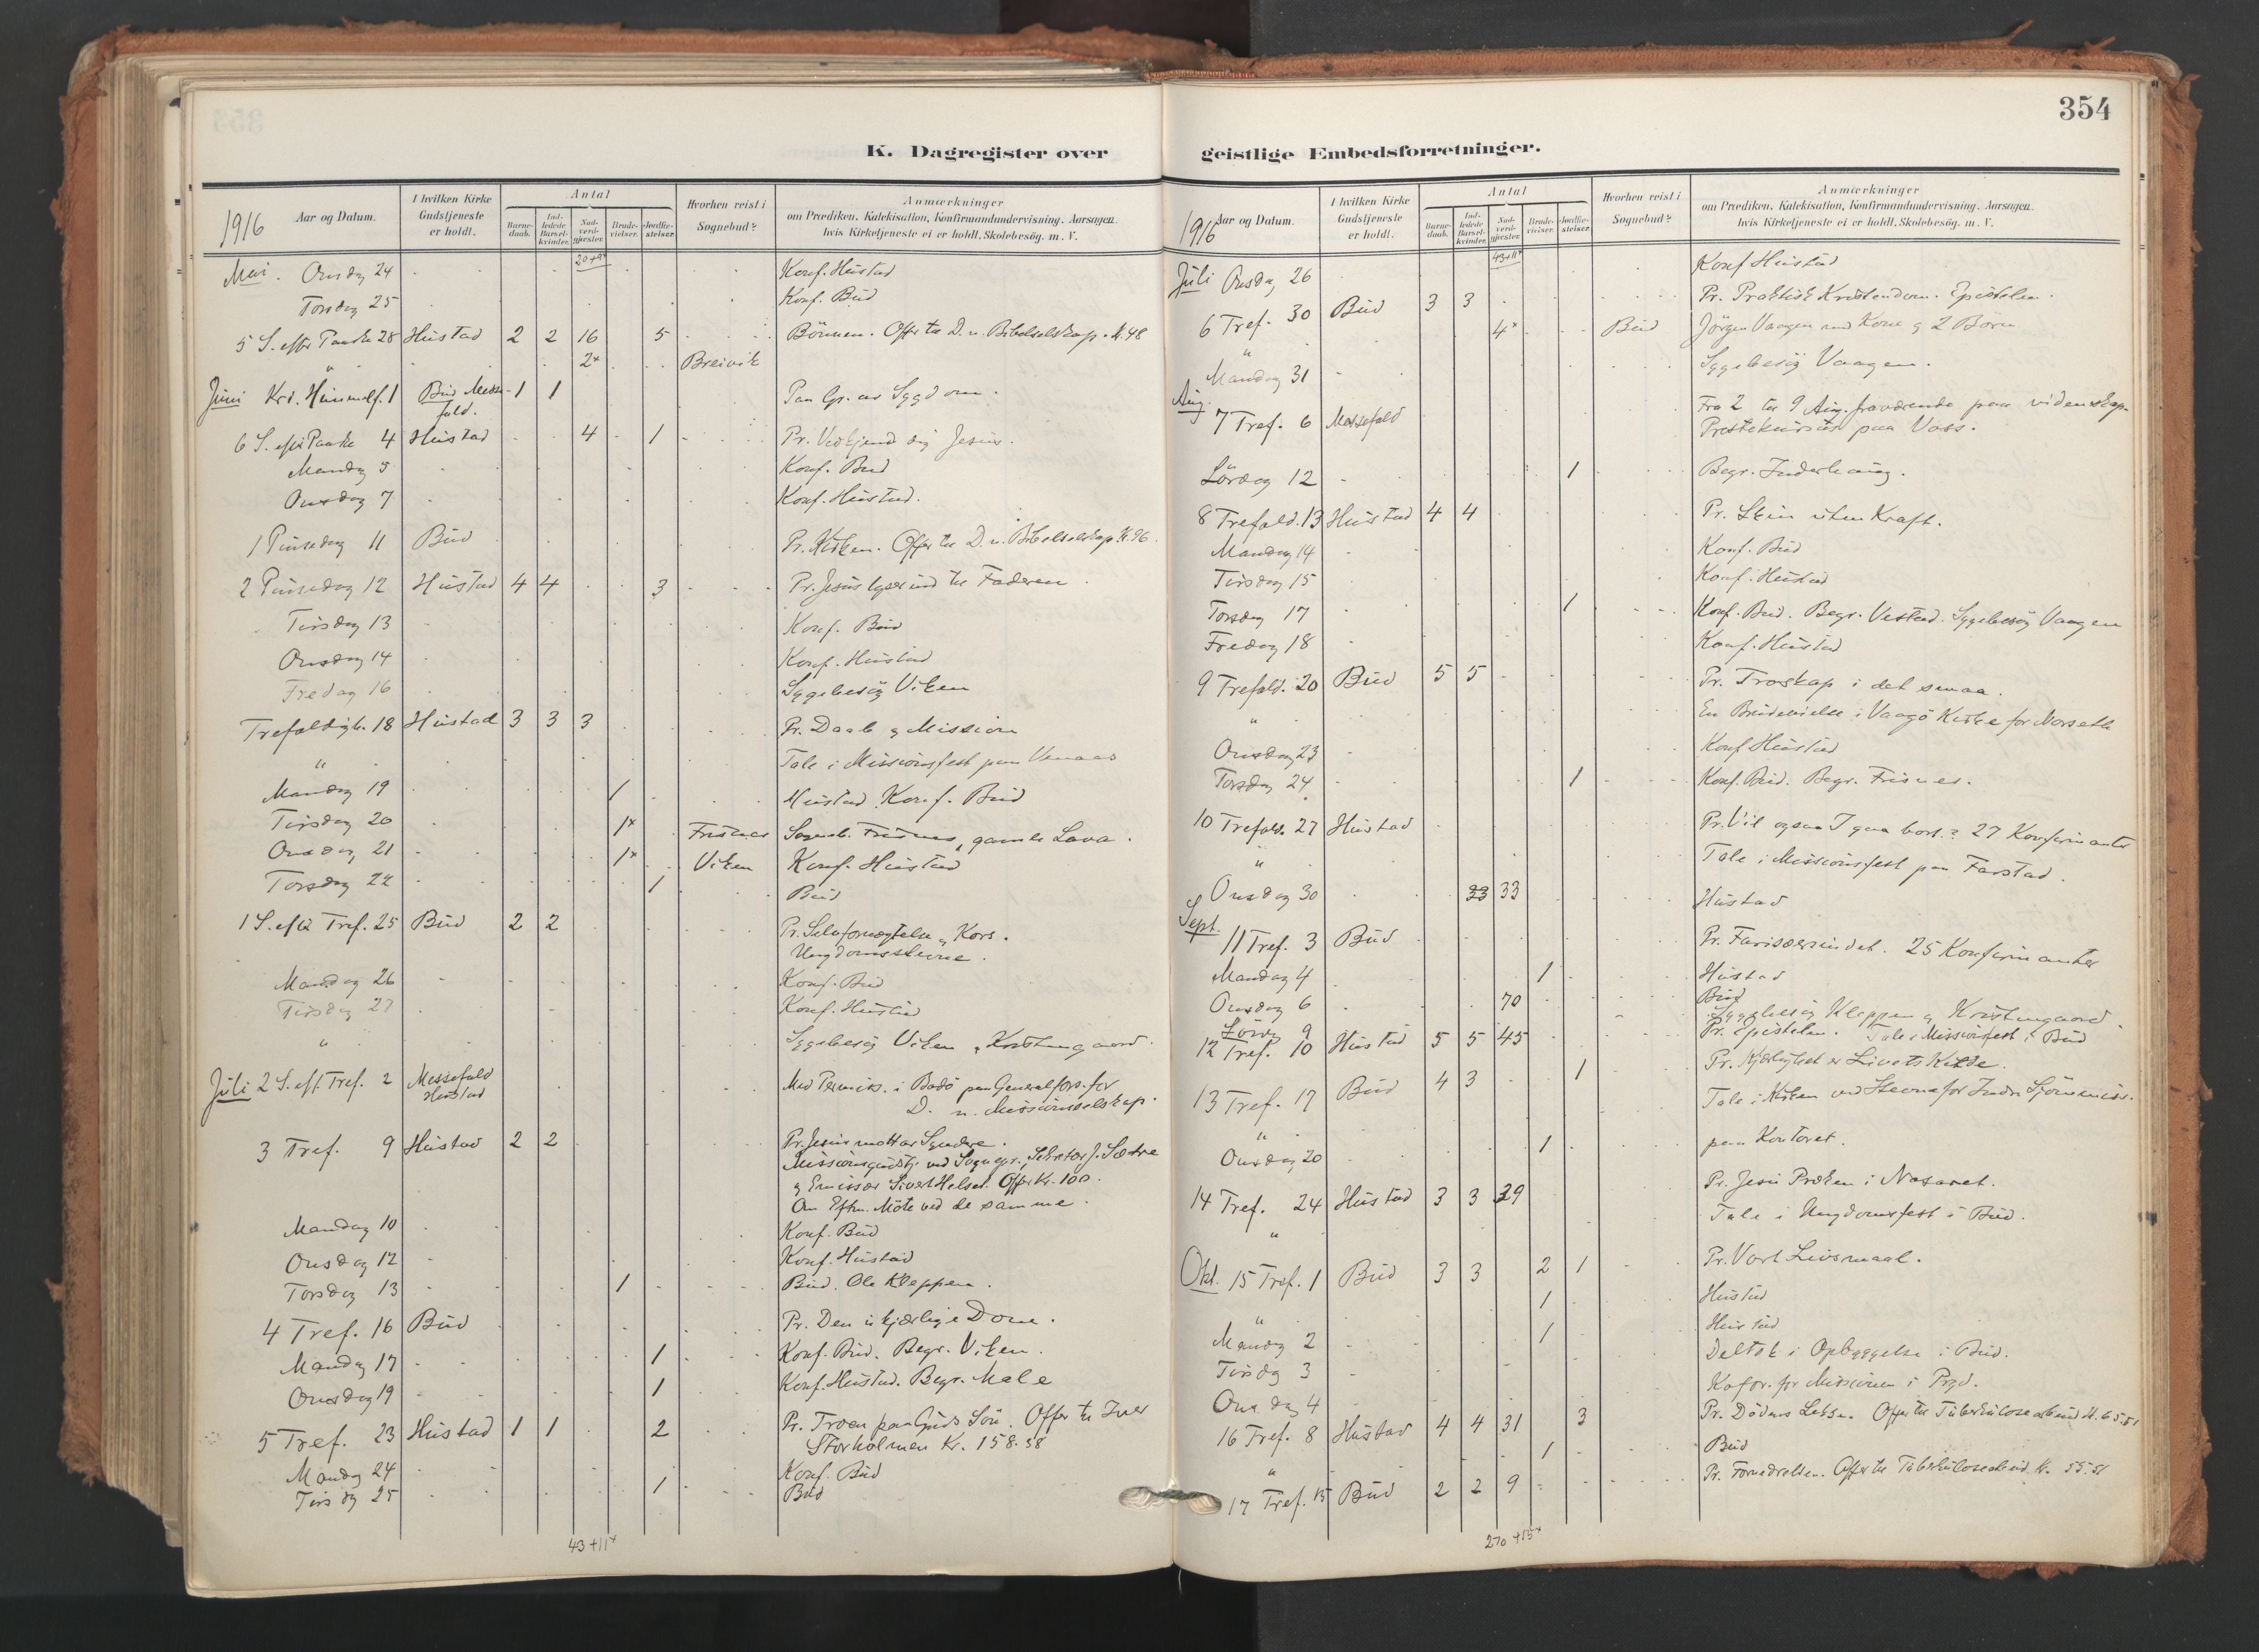 354
K. Dagregister over geistlige Embedsforretninger.
1916
Aar og Datum.
I hvilken Kirke Gudstjeneste er holdt.
Antal
Barne-daab.
Ind-ledede Barsel-kvinder.
Nad-verd-gjester.
Brude-vielser.
Jordfæ-stelser.
Hvorhen reist i Sognebud?
Anmærkninger
om Prædiken, Katekisation, Konfirmandundervisning, Aarsagen, hvis Kirketjeneste ei er holdt, Skolebesøg, m. V.
20+9x
Mai. Onsdag 24 Konf. Hustad
Torsdag 25 Konf. Bud
5 S. efter Paaske 28 Hustad 2 2 16 5 Bönnen. Offer til D. n. Bibelselskap. Kr. 48
" 2x Breivik
Juni Kr. Himmelf. 1 Bud Messe- 1 1
fald. Paa Gr. av Sygdom.
6 S. efter Paaske 4 Hustad 4 1 Pr. Vedkjend dig Jesus.
Mandag 5 Konf. Bud
Onsdag 7 Konf. Hustad.
1 Pinsedag 11 Bud Pr. Kirken. Offer til D. n. Bibelselskap. Kr. 96.
2 Pinsedag 12 Hustad 4 4 3 Pr. Jesus lyser ind til Faderen.
Tirsdag 13 Konf. Bud
Onsdag 14 Konf. Hustad
Fredag 16 Sygebesög Viken
Trefoldigh. 18 Hustad 3 3 3 Pr. Daab og Mission
" Tale i Missionsfest paa Venaas
Mandag 19 1 Hustad Konf. Bud
Tirsdag 20 1x Frisnes Sogneb. Frisnes, gamle Lava.
Onsdag 21 1x Viken Konf. Hustad
Torsdag 22 1 Bud
1 S. efter Tref. 25 Bud 2 2 Pr. Selvfornegtelse, Kors.
Ungdomsstevne.
Mandag 26 Konf. Bud
Tirsdag 27 Konf. Hustad
" Sygebesög Viken, Kristengaard.
Juli 2 S. eft Tref. 2 Messefald
Hustad Med Permis. i Bodö paa Generalfors. for
D. n. Missionsselskap.
3 Tref. 9 Hustad 2 2 Pr. Jesus mottar Syndere.
Missionsgudstj. ved Sognepr., Sekretær J. Sætre
og Emissær Sivert Helset. Offer Kr. 100.
Om Eftm. Möte ved de samme.
Mandag 10 Konf. Bud
Onsdag 12 Konf. Hustad
Torsdag 13 1 Bud. Ole Kleppen.
4 Tref. 16 Bud Pr. Den ukjærlige Dom.
Mandag 17 1 Konf. Bud. Begr. Viken.
Onsdag 19 1 Konf. Hustad. Begr. Male
5 Tref. 23 Hustad 1 1 2 Pr. Troen paa Guds Sön. Offer til Iver
Storholmen Kr. 158.58
Mandag 24 Konf. Bud
Tirsdag 25 1 Bud
43+11x
1916
Aar og Datum.
I hvilken Kirke Gudstjeneste er holdt.
Antal
Barne-daab.
Ind-ledede Barsel-kvinder.
Nad-verd-gjester.
Brude-vielser.
Jordfæ-stelser.
Hvorhen reist i Sognebud?
Anmærkninger
om Prædiken, Katekisation, Konfirmandundervisning, Aarsagen, hvis Kirketjeneste ei er holdt, Skolebesøg, m. V.
43+11x
Juli Onsdag 26 Konf Hustad
6 Tref. 30 Bud 3 3 Pr. Praktisk Kristendom. Epistelen.
" 4x Bud Jörgen Vaagen med Kone og 2 Börn
Mandag 31 Sygebesög Vaagen.
Aug. 7 Tref. 6 Messefald Fra 2 til 9 Aug. fraværende paa videnskap.
Prestekursus paa Voss.
Lördag 12 1 Begr. Inderhaug.
8 Trefold. 13 Hustad 4 4 Pr. Skin uten Kraft.
Mandag 14 Konf. Bud
Tirsdag 15 Konf. Hustad
Torsdag 17 1 Konf. Bud. Begr. Vestad. Sygebesög Vaagen
Fredag 18 Konf. Hustad
9 Trefold. 20 Bud 5 5 Pr. Troskap i det smaa.
" En Brudevielse i Vaagö Kirke for Norseth
Onsdag 23 Konf Hustad
Torsdag 24 1 Konf. Bud. Begr. Frisnes.
10 Trefold. 27 Hustad Pr. Vil ogsaa I gaa bort? 27 Konfirmanter
" Tale i Missionsfest paa Farstad.
Onsdag 30 33 33 Hustad
Sept. 11 Tref. 3 Bud Pr. Farisæersindet. 25 Konfirmanter
Mandag 4 1 Hustad
Onsdag 6 70 Bud
Lördag 9 Sygebesög Kleppen og Kristengaard.
12 Tref. 10 Hustad 5 5 45 Pr. Epistelen. Tale i Missionsfest i Bud
13 Tref. 17 Bud 4 3 1 Pr. Kjærlighet er Livets Kilde.
" Tale i Kirken ved Stevne for Indre Sjömmiss.
Onsdag 20 1 paa Kontoret.
14 Tref. 24 Hustad 3 3 29 Pr. Jesu Præken i Nasaret.
" Tale i Ungdomsfest i Bud.
Okt. 15 Tref. 1 Bud 3 3 2 1 Pr. Vort Livsmaal.
" 1 Hustad
Mandag 2 1 Hustad
Tirsdag 3 Deltok i Opbyggelse i Bud.
Onsdag 4 for Missionen i
16 Tref. 8 Hustad 4 4 31 3 Pr. Dödens Lekse. Offer til Tuberkulosearbeid Kr. 65.51
" 1 Bud
17 Tref. 15 Bud 2 2 9 Pr. Fornedrelsen. Offer til Tuberkulosearbeid. Kr. 55.51
270+15x